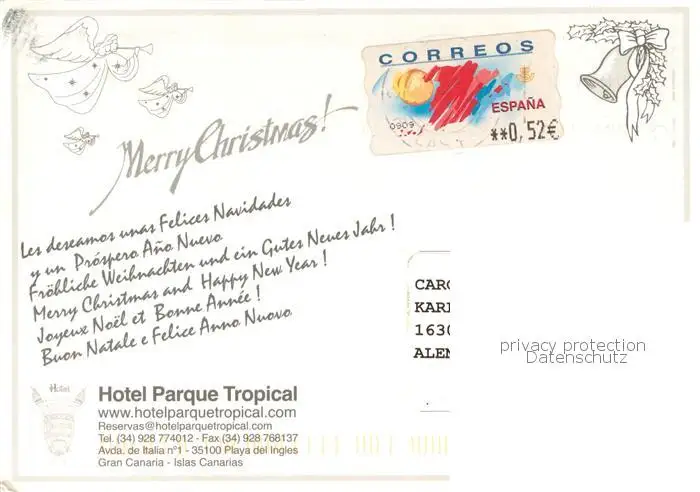 CORREOS
ESPAÑA
0909
**0,52€
Merry Christmas!
Les deseamos unas Felices Navidades
y un Próspero Año Nuevo
Fröhliche Weihnachten und ein Gutes Neues Jahr!
Merry Christmas and Happy New Year!
Joyeux Noël et Bonne Année!
Buon Natale e Felice Anno Nuovo
CARO
KARL
1630
ALEM
privacy protection
Datenschutz
Hotel
Hotel Parque Tropical
www.hotelparquetropical.com
Reservas@hotelparquetropical.com
Tel. (34) 928 774012 - Fax (34) 928 768137
Avda. de Italia nº1 - 35100 Playa del Ingles
Gran Canaria - Islas Canarias